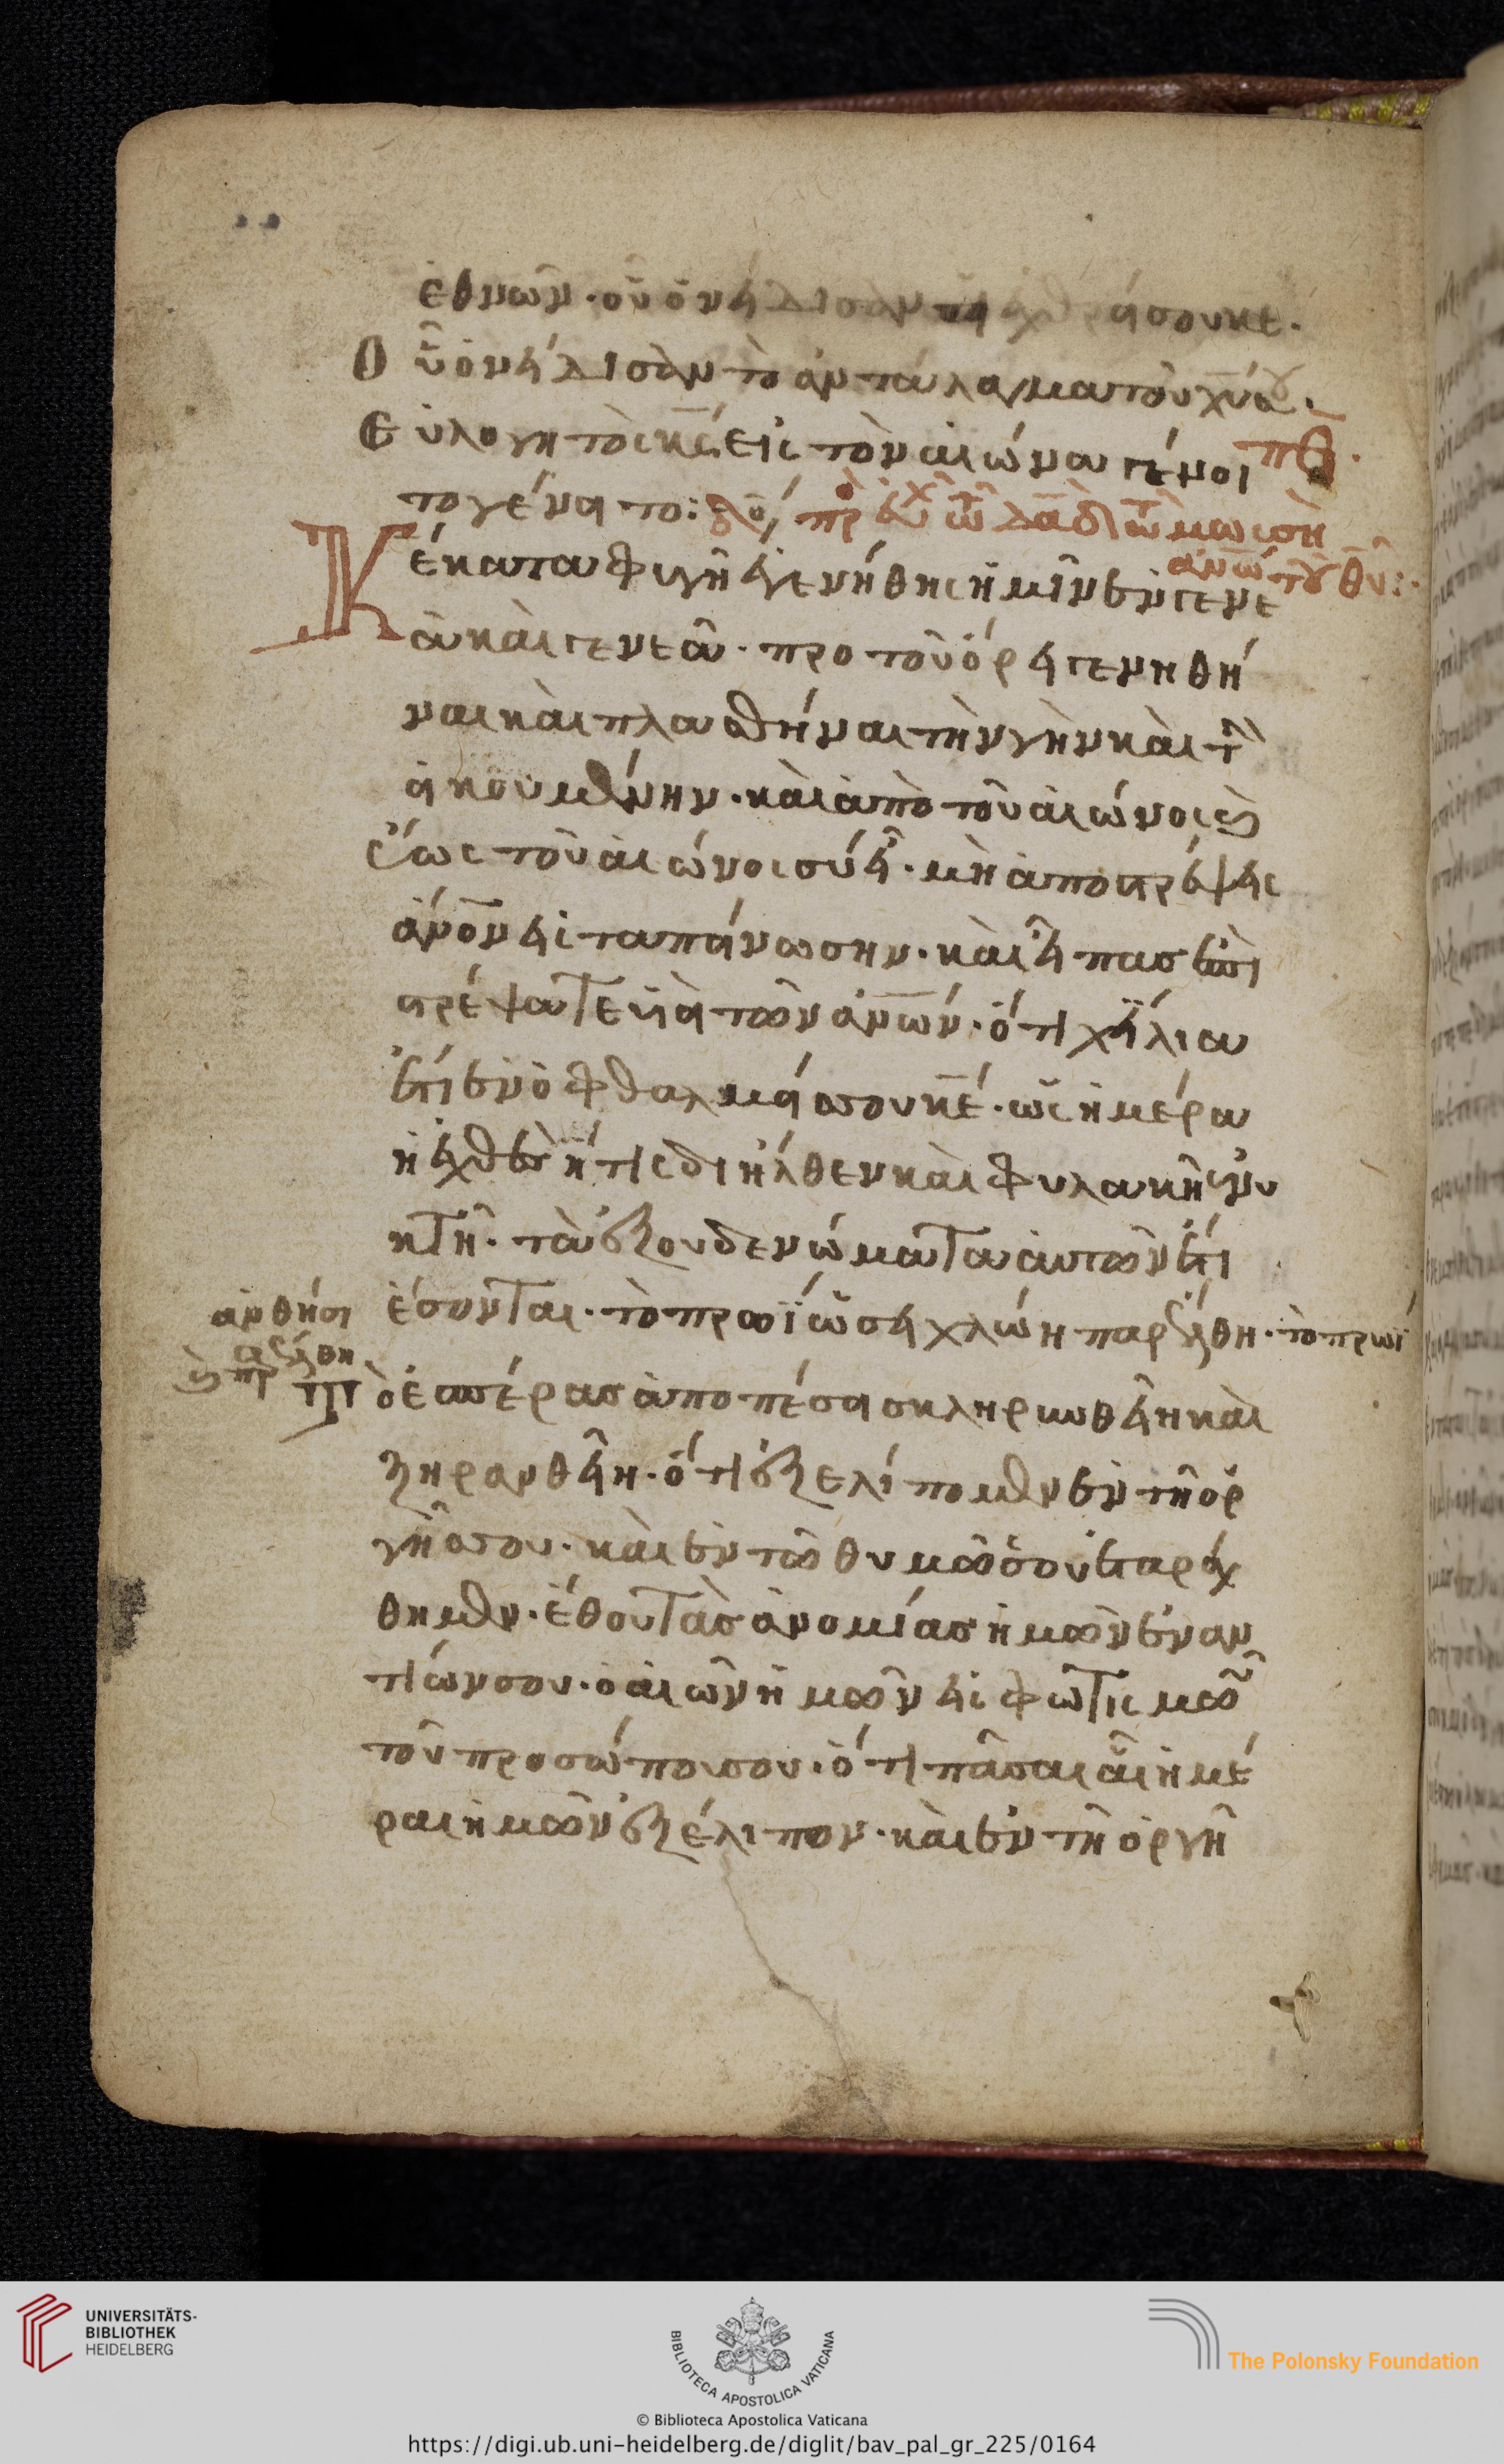 ἐθνῶν · οὗ ὀνείδισαν οἱ ἐχθροίσου κε ·
Οὗ ὀνείδισὰν τὸ ἀντάλαγμα τοῦ χυ σου ·
Εὐλογητὸς κς εἰς τὸν αἰώνα γένοι
το γένοιτο :
Κέ καταφιγὴ ἐγενήθης ἡμῖν ἐν γενε
ᾶ καὶ γενεᾶ · προ τοῦ ὄρει γενηθή
ναι καὶ πλασθήναι τὴν γὴν καὶ τὴν
οἰκουμένην · καὶ ἀπὸ τοῦ αἰώνος καὶ
ἕως τοῦ αἰώνος σύ εἶ · μὴ ἀποστρέψεις
ἄνον εἰς ταπείνωσην · καὶ εἶπας ἐπι
στρέψατε υἱοὶ τῶν ἀνων · ὅτι χίλια
ἔτι ἐν ὀφθαλμοίσσου κέ · ὡς ἡ μέρα
ἡ ἐχθὲς ἥτις διήλθεν καὶ φυλακὴ ἐν νυ
κτὴ · τὰ ἐξουδενώματα αὐτῶν ἔτι
ἔσονται · τὸ πρωῒ ὡσεὶ χλώη παρέλθη · τὸ πρωῒ
ἀνθήσι
καὶ παρέλθη
τὸ ἑσπέρας ἀποπέσοι σκληρωθείη καὶ
ξηρανθείη · ὅτι ἐξελίπομεν ἐν τῆ ὀρ
γῆ σου · καὶ ἐν τῶ θυμῶ σου ἐταράχ
θημεν · ἔθου τὰς ἀνομίας ἡμῶν ἐναν
τίων σου · ὁ αἰῶν ἡμῶν εἰς φωτισμὸν
τοῦ προσώποισου · ὅτι πᾶσαι αἱ ἡμέ
ραι ἡμῶν ἐξέλιπον · καὶ ἐν τῆ ὀργῆ
UNIVERSITÄTS-
BIBLIOTHEK
HEIDELBERG
BIBLIOTECA APOSTOLICA VATICANA
The Polonsky Foundation
© Biblioteca Apostolica Vaticana
https://digi.ub.uni-heidelberg.de/diglit/bav_pal_gr_225/0164